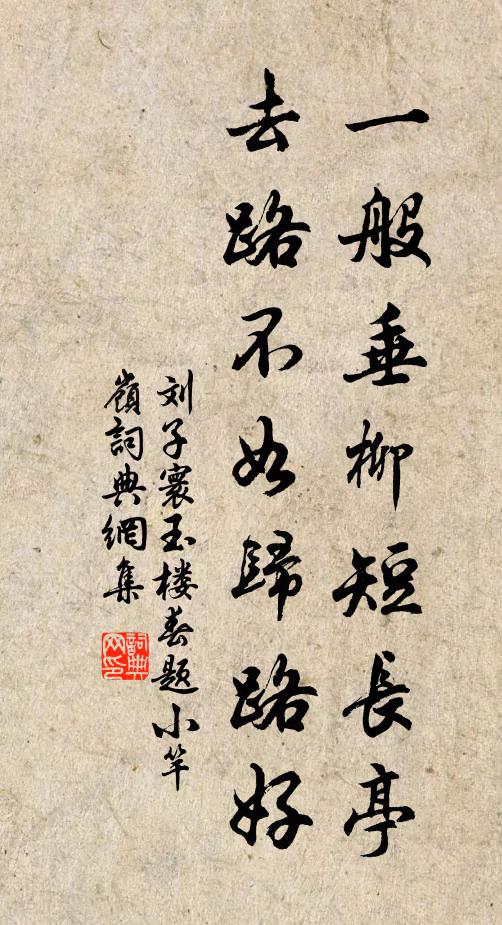 一般垂柳短長亭
去路不如歸路好
刘子寰玉楼春題小竿
嶺詞典網集
詞典
网印